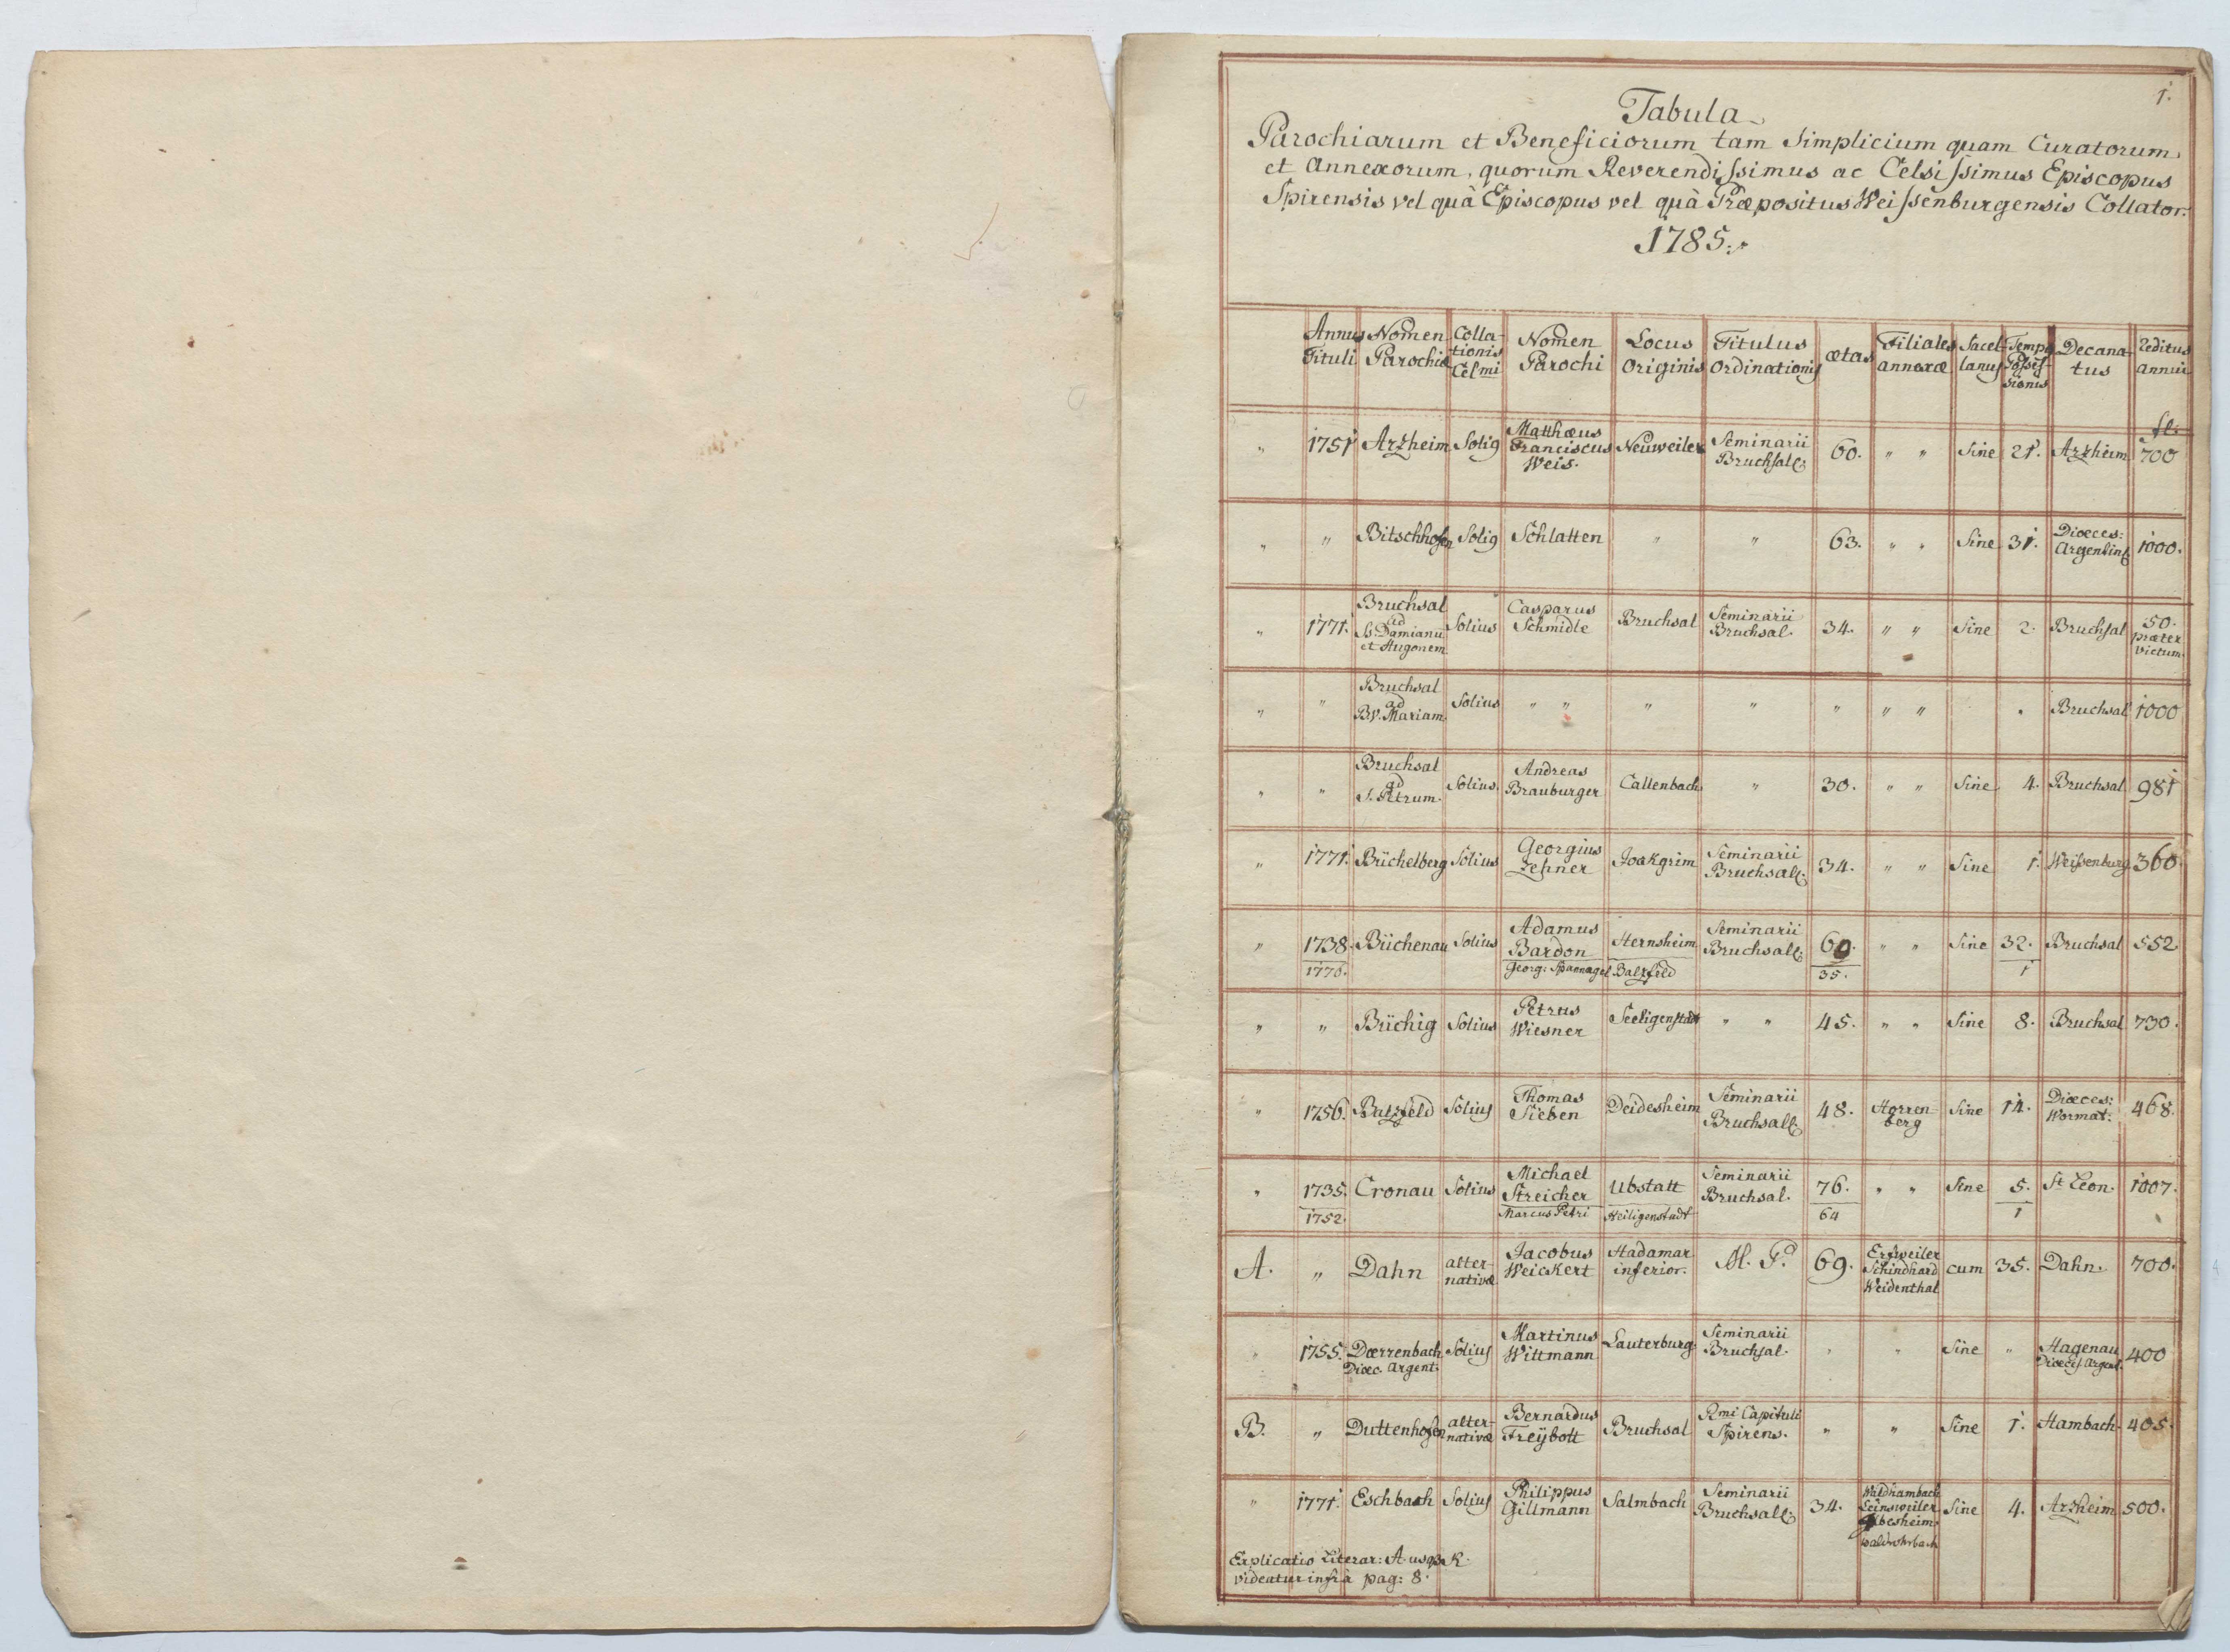 1.
Tabula
Parochiarum et Beneficiorum tam Simplicium quam Curatorum,
et annexorum, quorum Reverendissimus ac Celsissimus Episcopus
Spirensis vel quà Episcopus vel quà Præpositus Weissenburgensis Collator.
1785.
Annus Tituli | Nomen Parochiæ | Collationis Celmi | Nomen Parochi | Locus Originis | Titulus Ordinationis | ætas | Filiales annexæ | Sacellanus | Temp9 Possessionis | Decanatus | Reditus annui
fl.
" 1751 Arzheim Soli9 Matthæus Franciscus Weis. Neuweiler Seminarii Bruchsall: 60. " " Sine 21. Arzheim 700
" " Bitschhofen Soli9 Schlatten " " 63. " " Sine 31. Diœces: Argentin: 1000.
" 1771. Bruchsal ad Ss. Damianu et Hugonem. Solius Casparus Schmidle Bruchsal Seminarii Bruchsal. 34. " " Sine 2. Bruchsal 50. præter victum.
" " Bruchsal ad B.V. Mariam. Solius " " " " " " " Bruchsal 1000
" " Bruchsal ad S. Petrum. Solius. Andreas Brauburger Callenbach " 30. " " Sine 4. Bruchsal 981
" 1771. Büchelberg Solius Georgius Zehner Joakgrim Seminarii Bruchsall: 34. " " Sine 1. Weissenburg 360.
" 1738. Büchenau Solius Adamus Bardon Hernsheim Seminarii Bruchsall: 60. " " Sine 32. Bruchsal 552
1770. Georg: Spannagel Balzfeld 35. 1
" " Büchig Solius Petrus Wiesner Seeligenstadt " " 45. " " Sine 8. Bruchsal 730.
" 1756. Balzfeld Solius Thomas Sieben Deidesheim Seminarii Bruchsall: 48. Horrenberg Sine 14. Diœces: Wormat: 468.
" 1735. Cronau Solius Michael Streicher Ubstatt Seminarii Bruchsal. 76. " " Sine 5. St Leon. 1007.
1752. Marcus Petri Heiligenstadt 64 1
A. " Dahn alternativæ Jacobus Weickert Hadamar inferior. M. P. 69. Erfweiler Schindhard Weidenthal cum 35. Dahn. 700.
" 1755. Dœrrenbach Diœc. Argent: Solius Martinus Wittmann Lauterburg Seminarii Bruchsal. " " Sine " Hagenau Diœces. Argent. 400
B. " Duttenhofen alternativæ Bernardus Freÿbott Bruchsal Rmi Capituli Spirens. " " Sine 1. Hambach. 405.
" 1771. Eschbach Solius Philippus Gillmann Salmbach Seminarii Bruchsall: 34. Waldhambach Leinsweiler Ilbesheim. Waldrohrbach Sine 4. Arzheim 500.
Explicatio Literar: A usq3 K.
videatur infrà pag: 8.